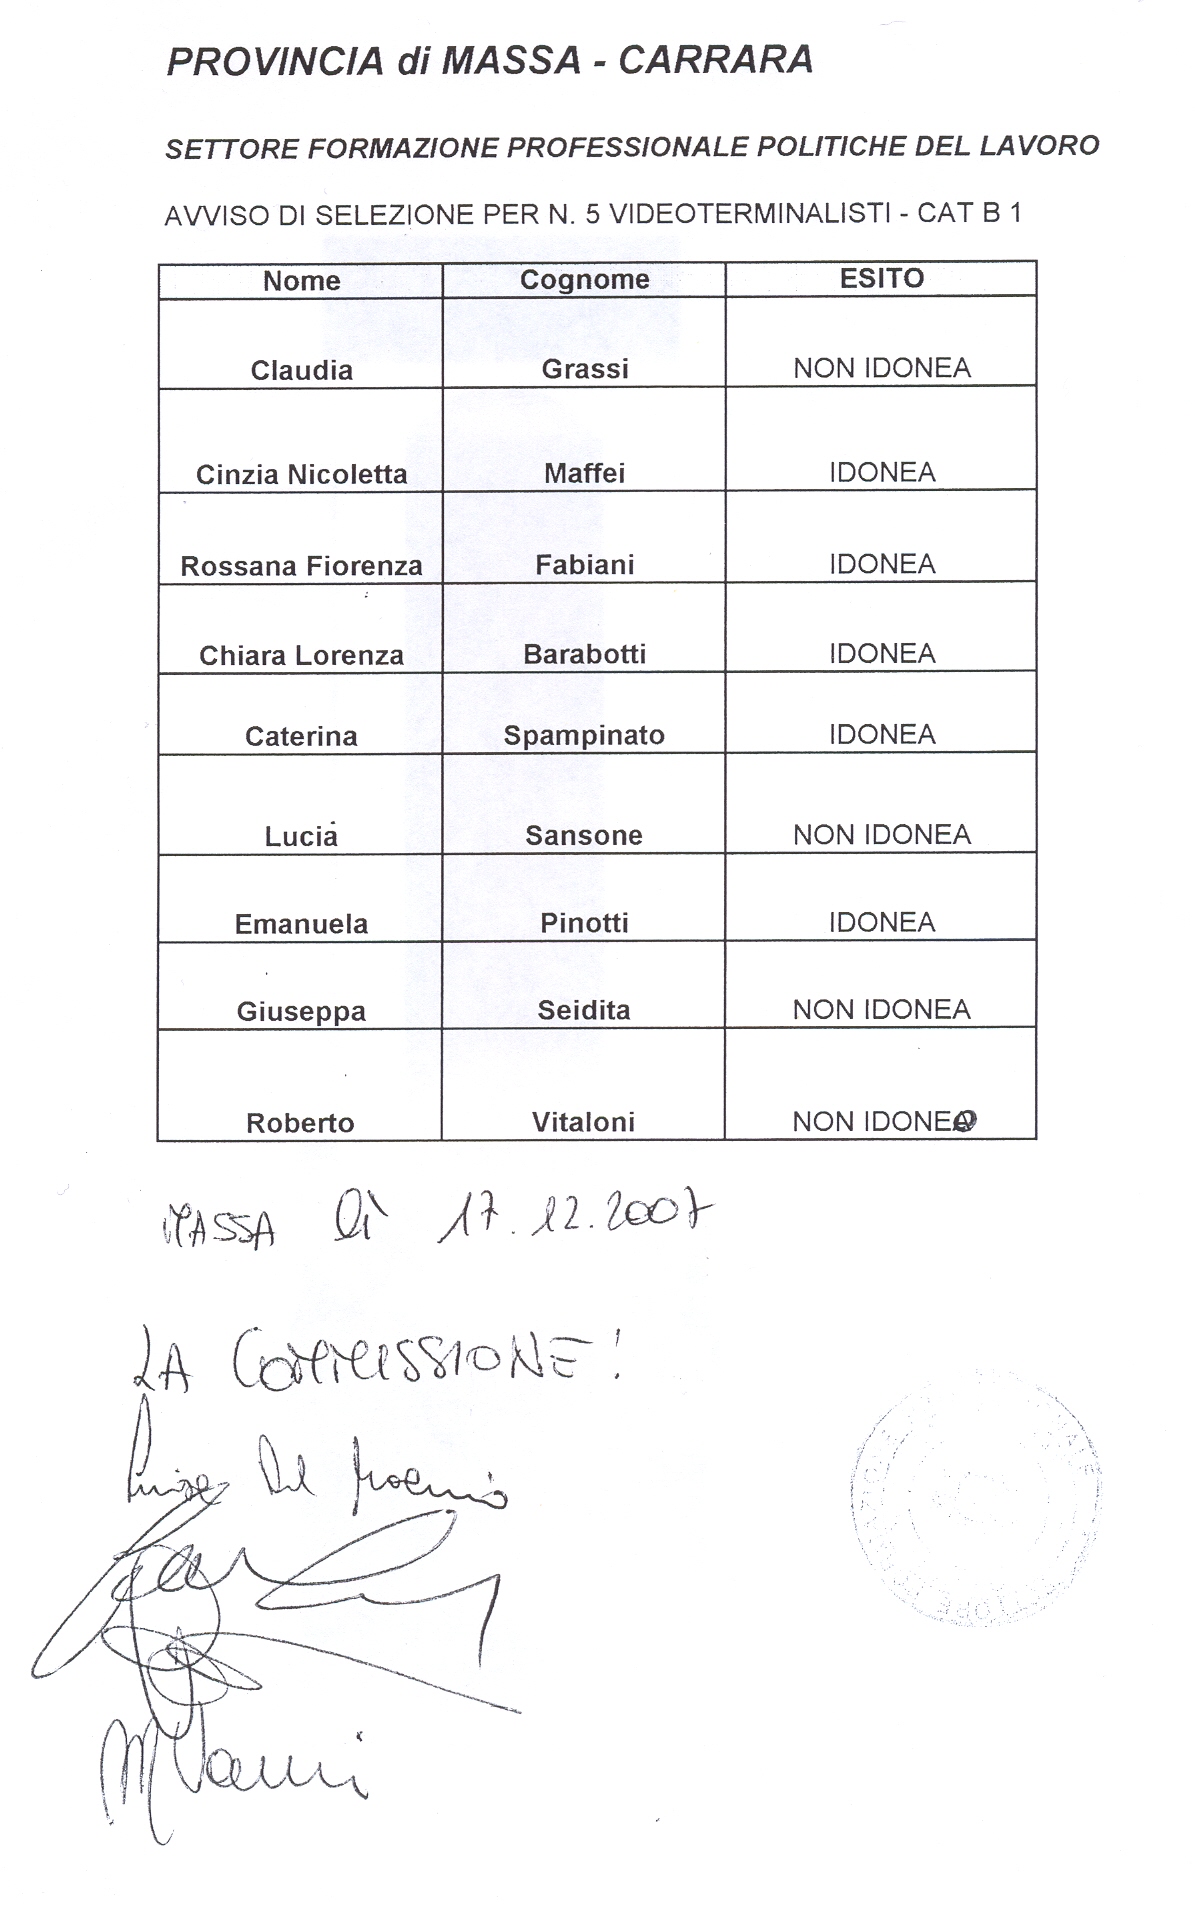 PROVINCIA di MASSA - CARRARA
SETTORE FORMAZIONE PROFESSIONALE POLITICHE DEL LAVORO
AVVISO DI SELEZIONE PER N. 5 VIDEOTERMINALISTI - CAT B 1
Nome Cognome ESITO
Claudia Grassi NON IDONEA
Cinzia Nicoletta Maffei IDONEA
Rossana Fiorenza Fabiani IDONEA
Chiara Lorenza Barabotti IDONEA
Caterina Spampinato IDONEA
Lucia Sansone NON IDONEA
Emanuela Pinotti IDONEA
Giuseppa Seidita NON IDONEA
Roberto Vitaloni NON IDONEO
MASSA lì 17.12.2007
LA COMMISSIONE!